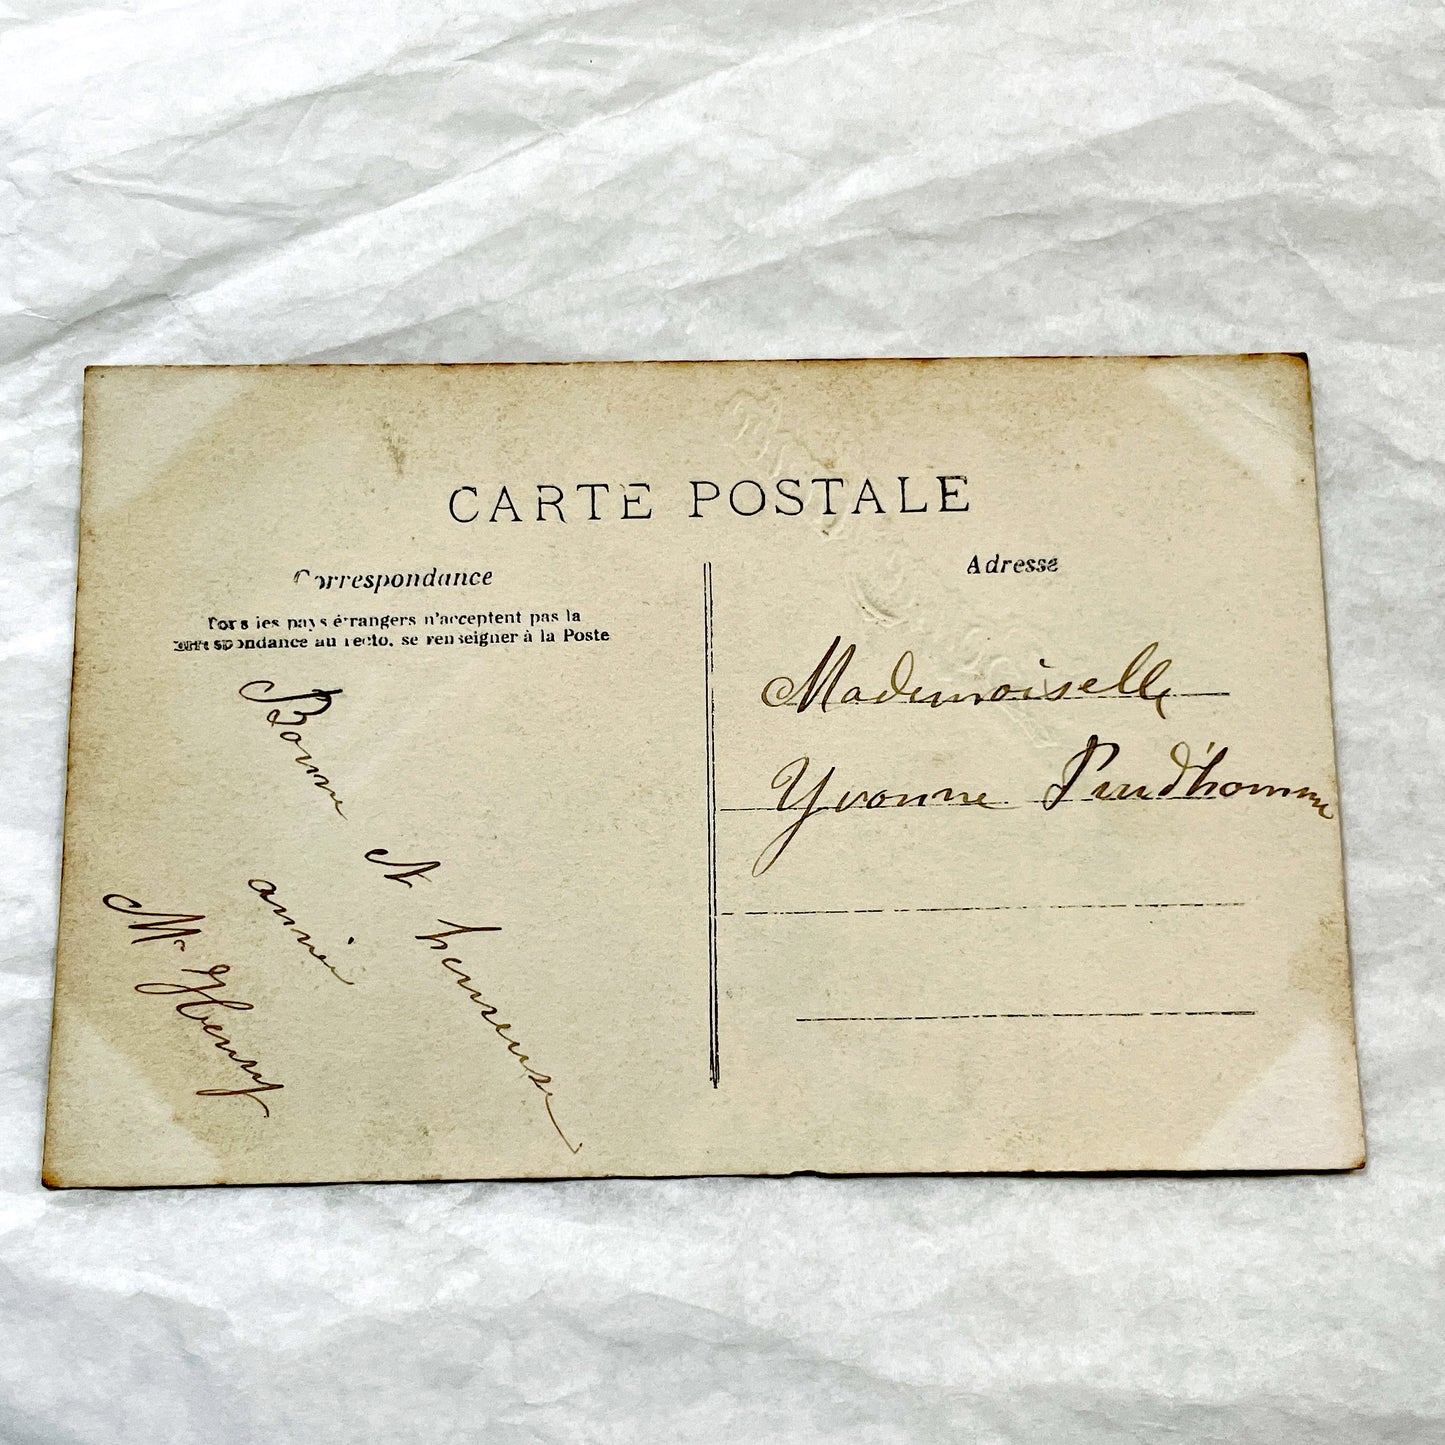 CARTE POSTALE
Correspondance
Tous les pays étrangers n'acceptent pas la
correspondance au recto, se renseigner à la Poste
Bonne et heureuse
année
Mr Henry
Adresse
Mademoiselle
Yvonne Prud'homme